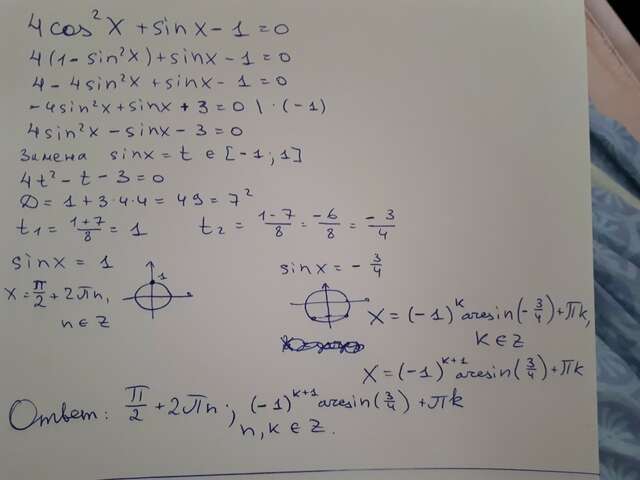 4cos²x + sinx - 1 = 0
4(1 - sin²x) + sinx - 1 = 0
4 - 4sin²x + sinx - 1 = 0
-4sin²x + sinx + 3 = 0 | · (-1)
4sin²x - sinx - 3 = 0
Замена sinx = t ∈ [-1; 1]
4t² - t - 3 = 0
D = 1 + 3·4·4 = 49 = 7²
t₁ = (1+7)/8 = 1 t₂ = (1-7)/8 = -6/8 = -3/4
sinx = 1 sinx = -3/4
1
x = π/2 + 2πn, n ∈ Z
x = (-1)^k arcsin(-3/4) + πk, k ∈ Z
x = (-1)^(k+1) arcsin(3/4) + πk
Ответ: π/2 + 2πn; (-1)^(k+1) arcsin(3/4) + πk
n, k ∈ Z.